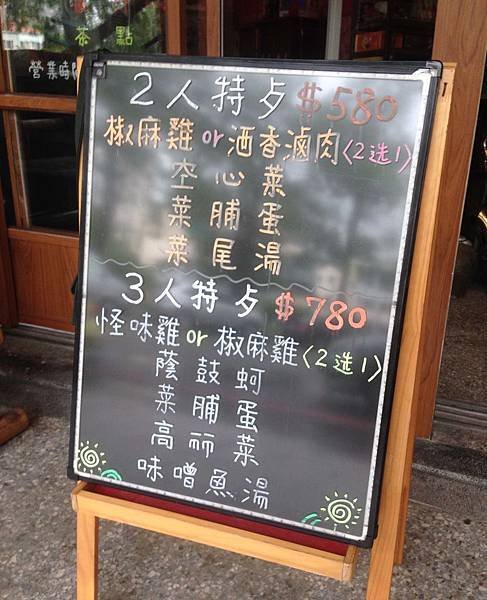 茶 點
營業時
2人特歺 $580
椒麻雞or酒香滷肉〈2选1〉
空心菜
菜脯蛋
菜尾湯
3人特歺 $780
怪味雞or椒麻雞〈2选1〉
蔭鼓蚵
菜脯蛋
高丽菜
味噌魚湯